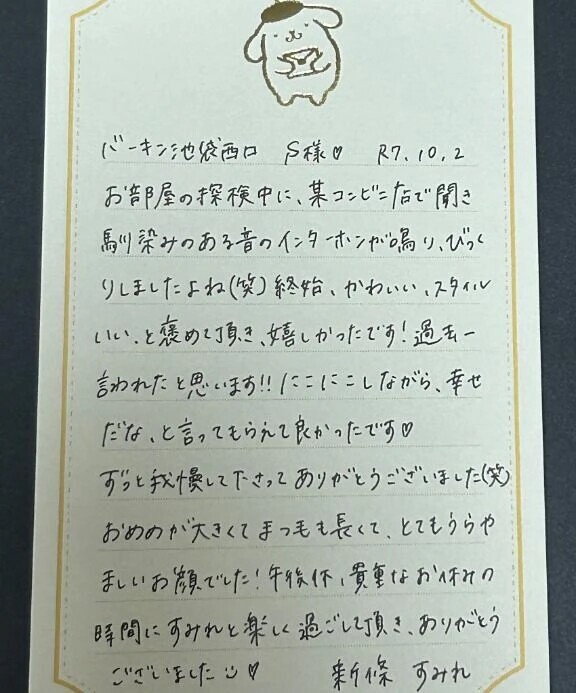 バーキン池袋西口 S様♡ R7.10.2
お部屋の探検中に、某コンビニ店で聞き
馴染みのある音のインターホンが鳴り、びっく
りしましたよね(笑)終始、かわいい、スタイル
いい、と褒めて頂き、嬉しかったです!過去一
言われたと思います!!にこにこしながら、幸せ
だな、と言ってもらえて良かったです♡
ずっと我慢して下さってありがとうございました(笑)
おめめが大きくてまつ毛も長くて、とてもうらや
ましいお顔でした!午後休、貴重なお休みの
時間にすみれと楽しく過ごして頂き、ありがとう
ございました☺♡ 新條 すみれ